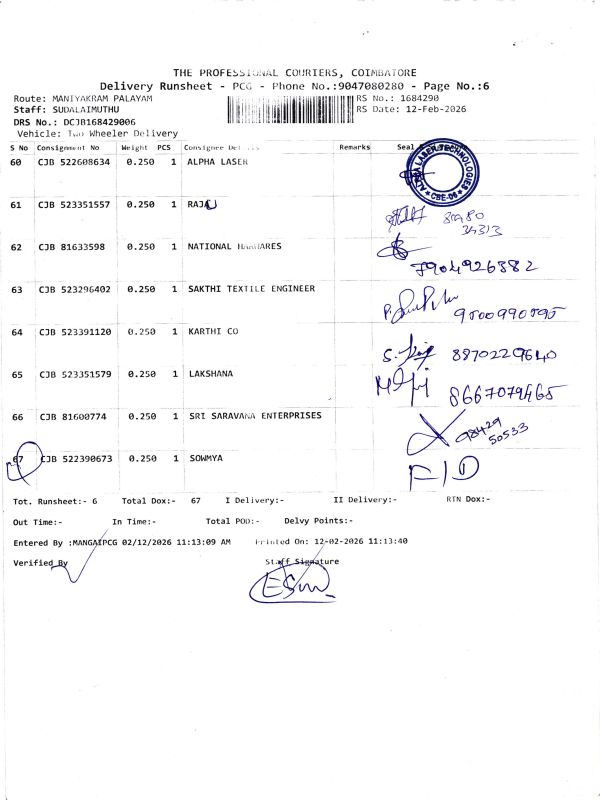 THE PROFESSIONAL COURIERS, COIMBATORE
Delivery Runsheet - PCG - Phone No.:9047080280 - Page No.:6
Route: MANIYAKRAM PALAYAM RS No.: 1684290
Staff: SUDALAIMUTHU RS Date: 12-Feb-2026
DRS No.: DCJB168429006
Vehicle: Two Wheeler Delivery
S No Consignment No Weight PCS Consignee Remarks Seal
60 CJB 522608634 0.250 1 ALPHA LASER
ALPHA LASER TECHNOLOGIES
CBE-06
61 CJB 523351557 0.250 1 RAJA
34313
62 CJB 81633598 0.250 1 NATIONAL
7904926382
63 CJB 523296402 0.250 1 SAKTHI TEXTILE ENGINEER
64 CJB 523391120 0.250 1 KARTHI CO
8870229640
65 CJB 523351579 0.250 1 LAKSHANA
8667079465
66 CJB 81600774 0.250 1 SRI SARAVANA ENTERPRISES
98429
50533
67 CJB 522390673 0.250 1 SOWMYA
Tot. Runsheet:- 6 Total Dox:- 67 I Delivery:- II Delivery:- RTN Dox:-
Out Time:- In Time:- Total POD:- Delvy Points:-
Entered By :MANGAIPCG 02/12/2026 11:13:09 AM Printed On: 12-02-2026 11:13:40
Verified By Staff Signature